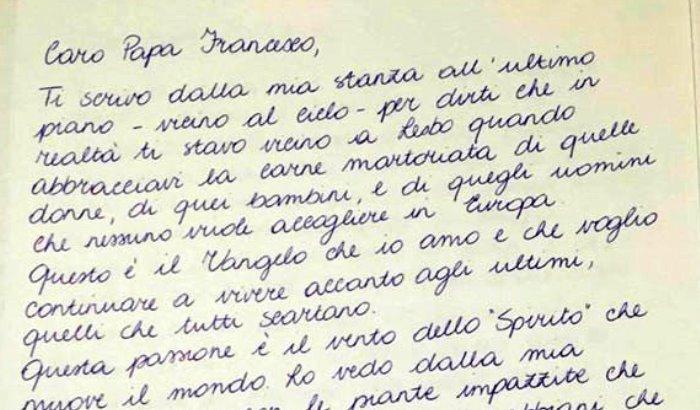 Caro Papa Francesco,
Ti scrivo dalla mia stanza all'ultimo
piano - vicino al cielo - per dirti che in
realtà ti stavo vicino a Lesbo quando
abbracciavi la carne martoriata di quelle
donne, di quei bambini, e di quegli uomini
che nessuno vuole accogliere in Europa.
Questo è il Vangelo che io amo e che voglio
continuare a vivere accanto agli ultimi,
quelli che tutti scartano.
Questa passione è il vento dello "Spirito" che
muove il mondo. Lo vedo dalla mia
con le piante impazzite che
che